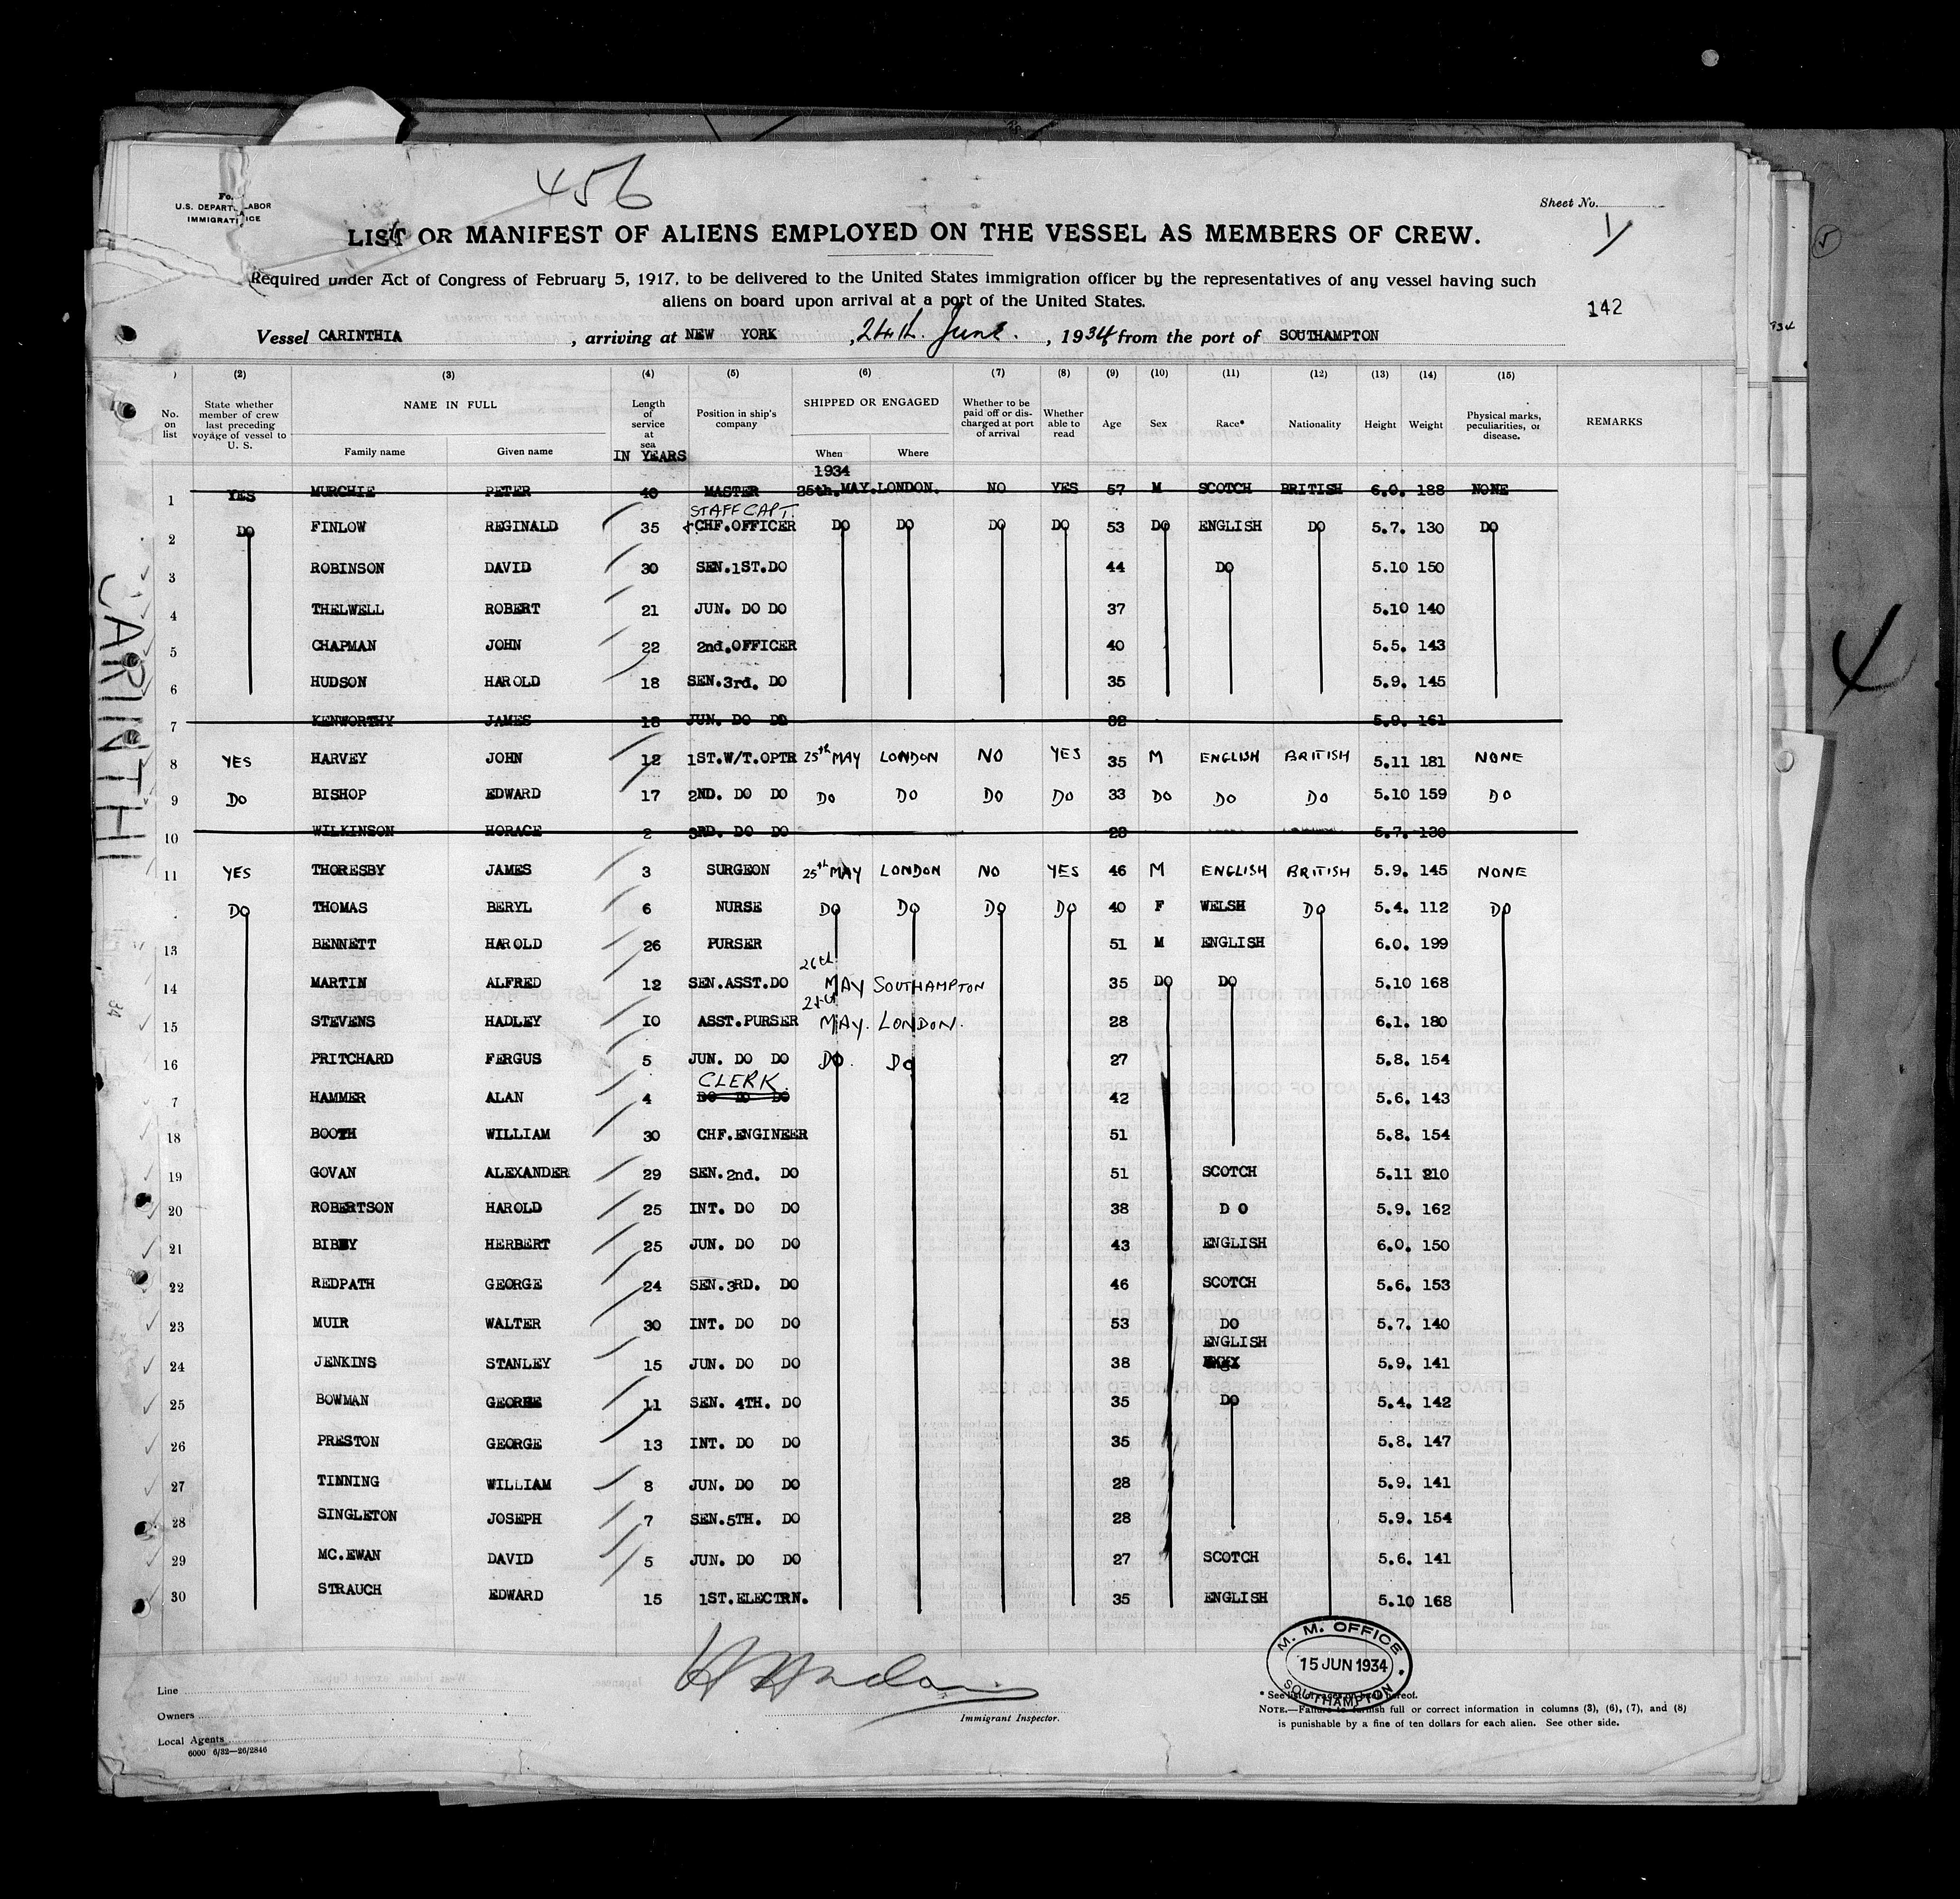 456
U.S. DEPART LABOR
IMMIGRATI ICE
Sheet No.
1
LIST OR MANIFEST OF ALIENS EMPLOYED ON THE VESSEL AS MEMBERS OF CREW.
Required under Act of Congress of February 5, 1917, to be delivered to the United States immigration officer by the representatives of any vessel having such
aliens on board upon arrival at a port of the United States.
142
Vessel CARINTHIA, arriving at NEW YORK, 24th. June., 1934 from the port of SOUTHAMPTON
(2) (3) (4) (5) (6) (7) (8) (9) (10) (11) (12) (13) (14) (15)
No. on list State whether member of crew last preceding voyage of vessel to U. S. NAME IN FULL Family name Given name Length of service at sea IN YEARS Position in ship's company SHIPPED OR ENGAGED When Where Whether to be paid off or discharged at port of arrival Whether able to read Age Sex Race* Nationality Height Weight Physical marks, peculiarities, or disease. REMARKS
1934
1 YES MURCHIE PETER 40 MASTER 25th. MAY. LONDON. NO YES 57 M SCOTCH BRITISH 6.0. 188 NONE
STAFF CAPT.
2 DO FINLOW REGINALD 35 CHF.OFFICER DO DO DO DO 53 DO ENGLISH DO 5.7. 130 DO
3 ROBINSON DAVID 30 SEN.1ST.DO 44 DO 5.10 150
4 THELWELL ROBERT 21 JUN. DO DO 37 5.10 140
5 CHAPMAN JOHN 22 2nd.OFFICER 40 5.5. 143
6 HUDSON HAROLD 18 SEN.3rd. DO 35 5.9. 145
7 KENWORTHY JAMES 18 JUN. DO DO 32 5.9. 161
8 YES HARVEY JOHN 12 1ST.W/T.OPTR 25th MAY LONDON NO YES 35 M ENGLISH BRITISH 5.11 181 NONE
9 DO BISHOP EDWARD 17 2ND. DO DO DO DO DO DO 33 DO DO DO 5.10 159 DO
10 WILKINSON HORACE 2 3RD. DO DO 5.7. 130
11 YES THORESBY JAMES 3 SURGEON 25th MAY LONDON NO YES 46 M ENGLISH BRITISH 5.9. 145 NONE
DO THOMAS BERYL 6 NURSE DO DO DO DO 40 F WELSH DO 5.4. 112 DO
13 BENNETT HAROLD 26 PURSER 51 M ENGLISH 6.0. 199
26th
14 MARTIN ALFRED 12 SEN.ASST.DO MAY SOUTHAMPTON 35 DO DO 5.10 168
15 STEVENS HADLEY 10 ASST.PURSER MAY. LONDON. 28 6.1. 180
16 PRITCHARD FERGUS 5 JUN. DO DO DO. DO 27 5.8. 154
CLERK.
7 HAMMER ALAN 4 DO DO DO 42 5.6. 143
18 BOOTH WILLIAM 30 CHF.ENGINEER 51 5.8. 154
19 GOVAN ALEXANDER 29 SEN.2nd. DO 51 SCOTCH 5.11 210
20 ROBERTSON HAROLD 25 INT. DO DO 38 D O 5.9. 162
21 BIBBY HERBERT 25 JUN. DO DO 43 ENGLISH 6.0. 150
22 REDPATH GEORGE 24 SEN.3RD. DO 46 SCOTCH 5.6. 153
23 MUIR WALTER 30 INT. DO DO 53 DO 5.7. 140
ENGLISH
24 JENKINS STANLEY 15 JUN. DO DO 38 5.9. 141
25 BOWMAN GEORGE 11 SEN. 4TH. DO 35 DO 5.4. 142
26 PRESTON GEORGE 13 INT. DO DO 35 5.8. 147
27 TINNING WILLIAM 8 JUN. DO DO 28 5.9. 141
28 SINGLETON JOSEPH 7 SEN.5TH. DO 28 5.9. 154
29 MC.EWAN DAVID 5 JUN. DO DO 27 SCOTCH 5.6. 141
30 STRAUCH EDWARD 15 1ST.ELECTRN. 35 ENGLISH 5.10 168
CARINTHI
4
Line
Owners
Local Agents
6000 6/32—26/2846
Immigrant Inspector.
M. M. OFFICE
15 JUN 1934
SOUTHAMPTON
* See list of races on back hereof.
NOTE.—Failure to furnish full or correct information in columns (3), (6), (7), and (8)
is punishable by a fine of ten dollars for each alien. See other side.